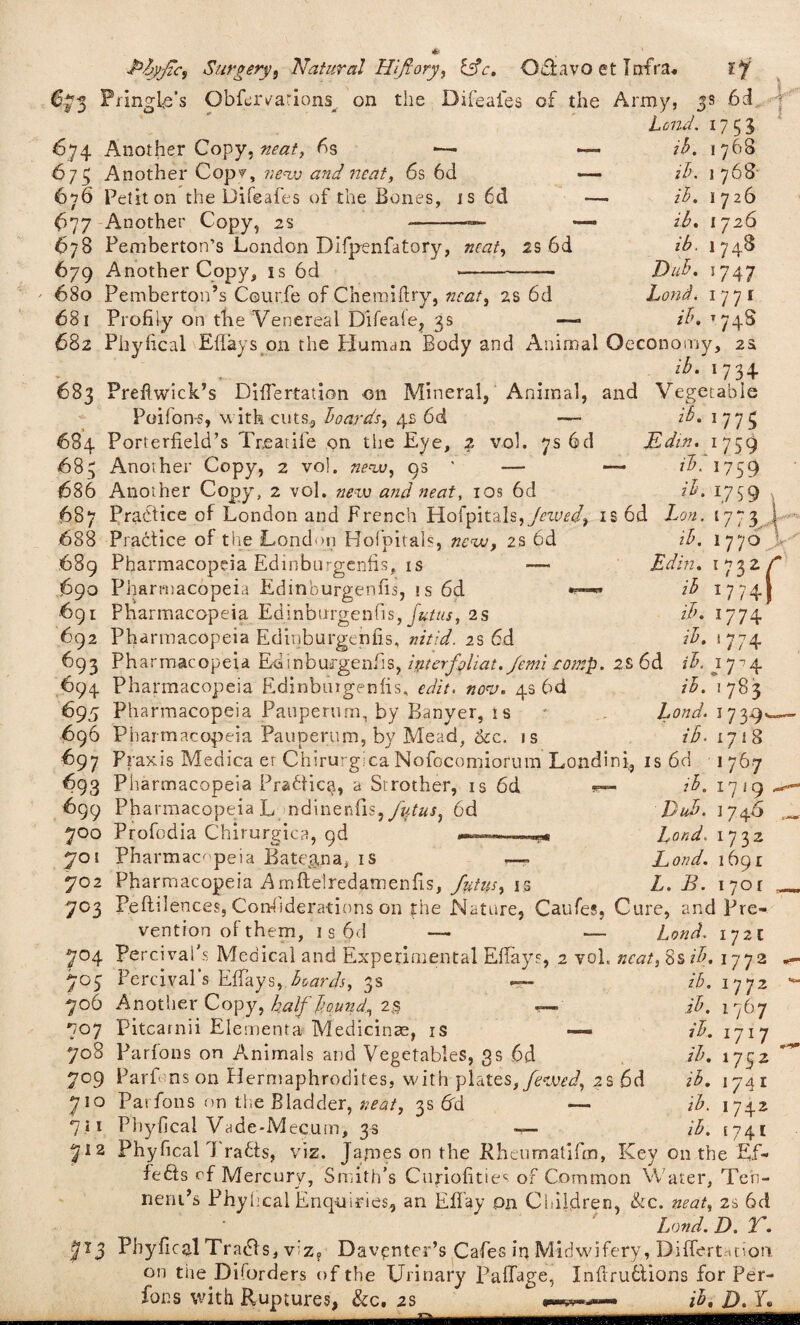 Phyſic, Surgery, Natural Hiſtory, &c. Octavo et Infra. 17
673 Pringle's Obſervations on the Diſeaſes of the Army, 3s 6d
Lond. 1753
674 Another Copy, neat, 6s — — ib. 1768
675 Another Copy, new and neat, 6s 6d — ib. 1768
676 Petit on the Diſeaſes of the Bones, 1s 6d — ib. 1726
677 Another Copy, 2s ——— — ib. 1726
678 Pemberton's London Diſpenſatory, neat, 2s 6d ib. 1748
679 Another Copy, 1s 6d ——— Dub. 1747
680 Pemberton's Courſe of Chemiſtry, neat, 2s 6d Lond. 1771
681 Profily on the Venereal Diſeaſe, 3s — ib. 1748
682 Phyſical Eſſays on the Human Body and Animal Oeconomy, 2s
ib. 1734
683 Preſtwick's Diſſertation on Mineral, Animal, and Vegetable
Poiſons, with cuts, boards, 4s 6d — ib. 1775
684 Porterfield's Treatiſe on the Eye, 2 vol. 7s 6d Edin. 1759
685 Another Copy, 2 vol. new, 9s — — ib. 1759
686 Another Copy, 2 vol. new and neat, 10s 6d ib. 1759
687 Practice of London and French Hoſpitals, ſewed, 1s 6d Lon. 1773
688 Practice of the London Hoſpitals, new, 2s 6d ib. 1770
689 Pharmacopeia Edinburgenſis, 1s — Edin. 1732
690 Pharmacopeia Edinburgenſis, 1s 6d — ib 1774
691 Pharmacopeia Edinburgenſis, ſutus, 2s ib. 1774
692 Pharmacopeia Edinburgenſis, nitid. 2s 6d ib. 1774
693 Pharmacopeia Edinburgenſis, interfoliat. ſemi comp. 2s 6d ib. 1774
694 Pharmacopeia Edinburgenſis, edit. nov. 4s 6d ib. 1783
695 Pharmacopeia Pauperum, by Banyer, 1s Lond. 1739
696 Pharmacopeia Pauperum, by Mead, &c. 1s ib. 1718
697 Praxis Medica et Chirurgica Nofocomiorum Londini, 1s 6d 1767
693 Pharmacopeia Practica, a Strother, 1s 6d — ib. 1719
699 Pharmacopeia Londinenſis, ſutus, 6d Dub. 1746
700 Proſodia Chirurgica, 9d ——— Lond. 1732
701 Pharmacopeia Bateana, 1s — Lond. 1691
702 Pharmacopeia Amſtelredamenſis, ſutus, 1s L. B. 1701
703 Peſtilences, Conſiderations on the Nature, Cauſes, Cure, and Pre-
vention of them, 1s 6d — — Lond. 1721
704 Percival's Medical and Experimental Eſſays, 2 vol. neat, 8s ib. 1772
705 Percival's Eſſays, boards, 3s — ib. 1772
706 Another Copy, half bound, 2s — ib. 1767
707 Pitcarnii Elementa Medicinæ, 1s — ib. 1717
708 Parſons on Animals and Vegetables, 3s 6d ib. 1752
709 Parſons on Hermaphrodites, with plates, ſewed, 2s 6d ib. 1741
710 Parſons on the Bladder, neat, 3s 6d — ib. 1742
711 Phyſical Vade-Mecum, 3s — ib. 1741
712 Phyſical Tracts, viz. James on the Rheumatiſm, Key on the Ef-
fects of Mercury, Smith's Curioſities of Common Water, Ten-
nent's Phyſical Enquiries, an Eſſay on Children, &c. neat, 2s 6d
Lond. D. Y.
713 Phyſical Tracts, viz. Daventer's Caſes in Midwifery, Diſſertation
on the Diſorders of the Urinary Paſſage, Inſtructions for Per-
ſons with Ruptures, &c. 2s ——— ib. D. Y.